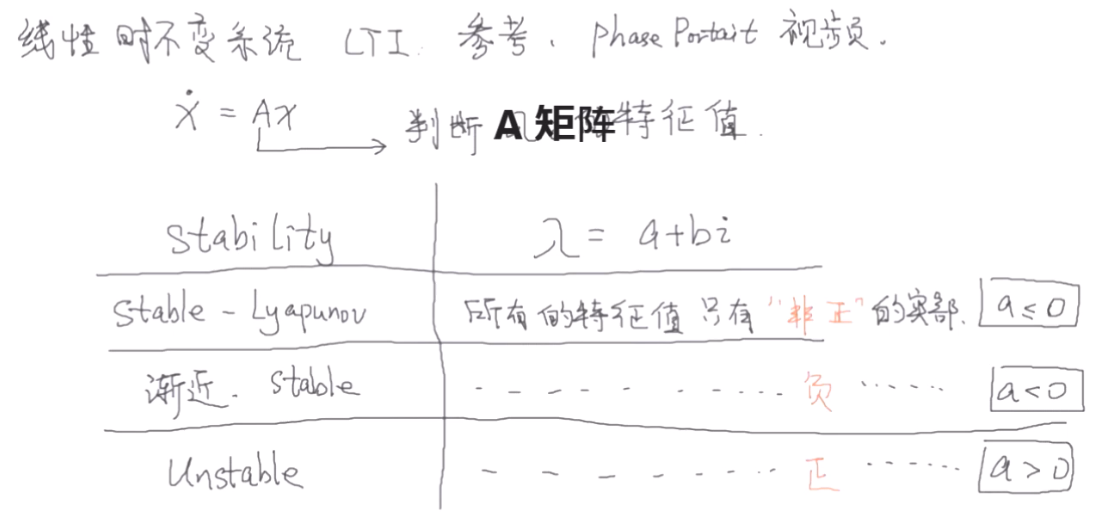 线性时不变系统 LTI. 参考. Phase Portait 视频.
ẋ = Ax
判断 A 矩阵特征值.
Stability λ = a+bi
Stable - Lyapunov 所有的特征值只有"非正"的实部. a ≤ 0
渐近. Stable - - - - - - - 负 ...... a < 0
Unstable - - - - - - - 正 ...... a > 0